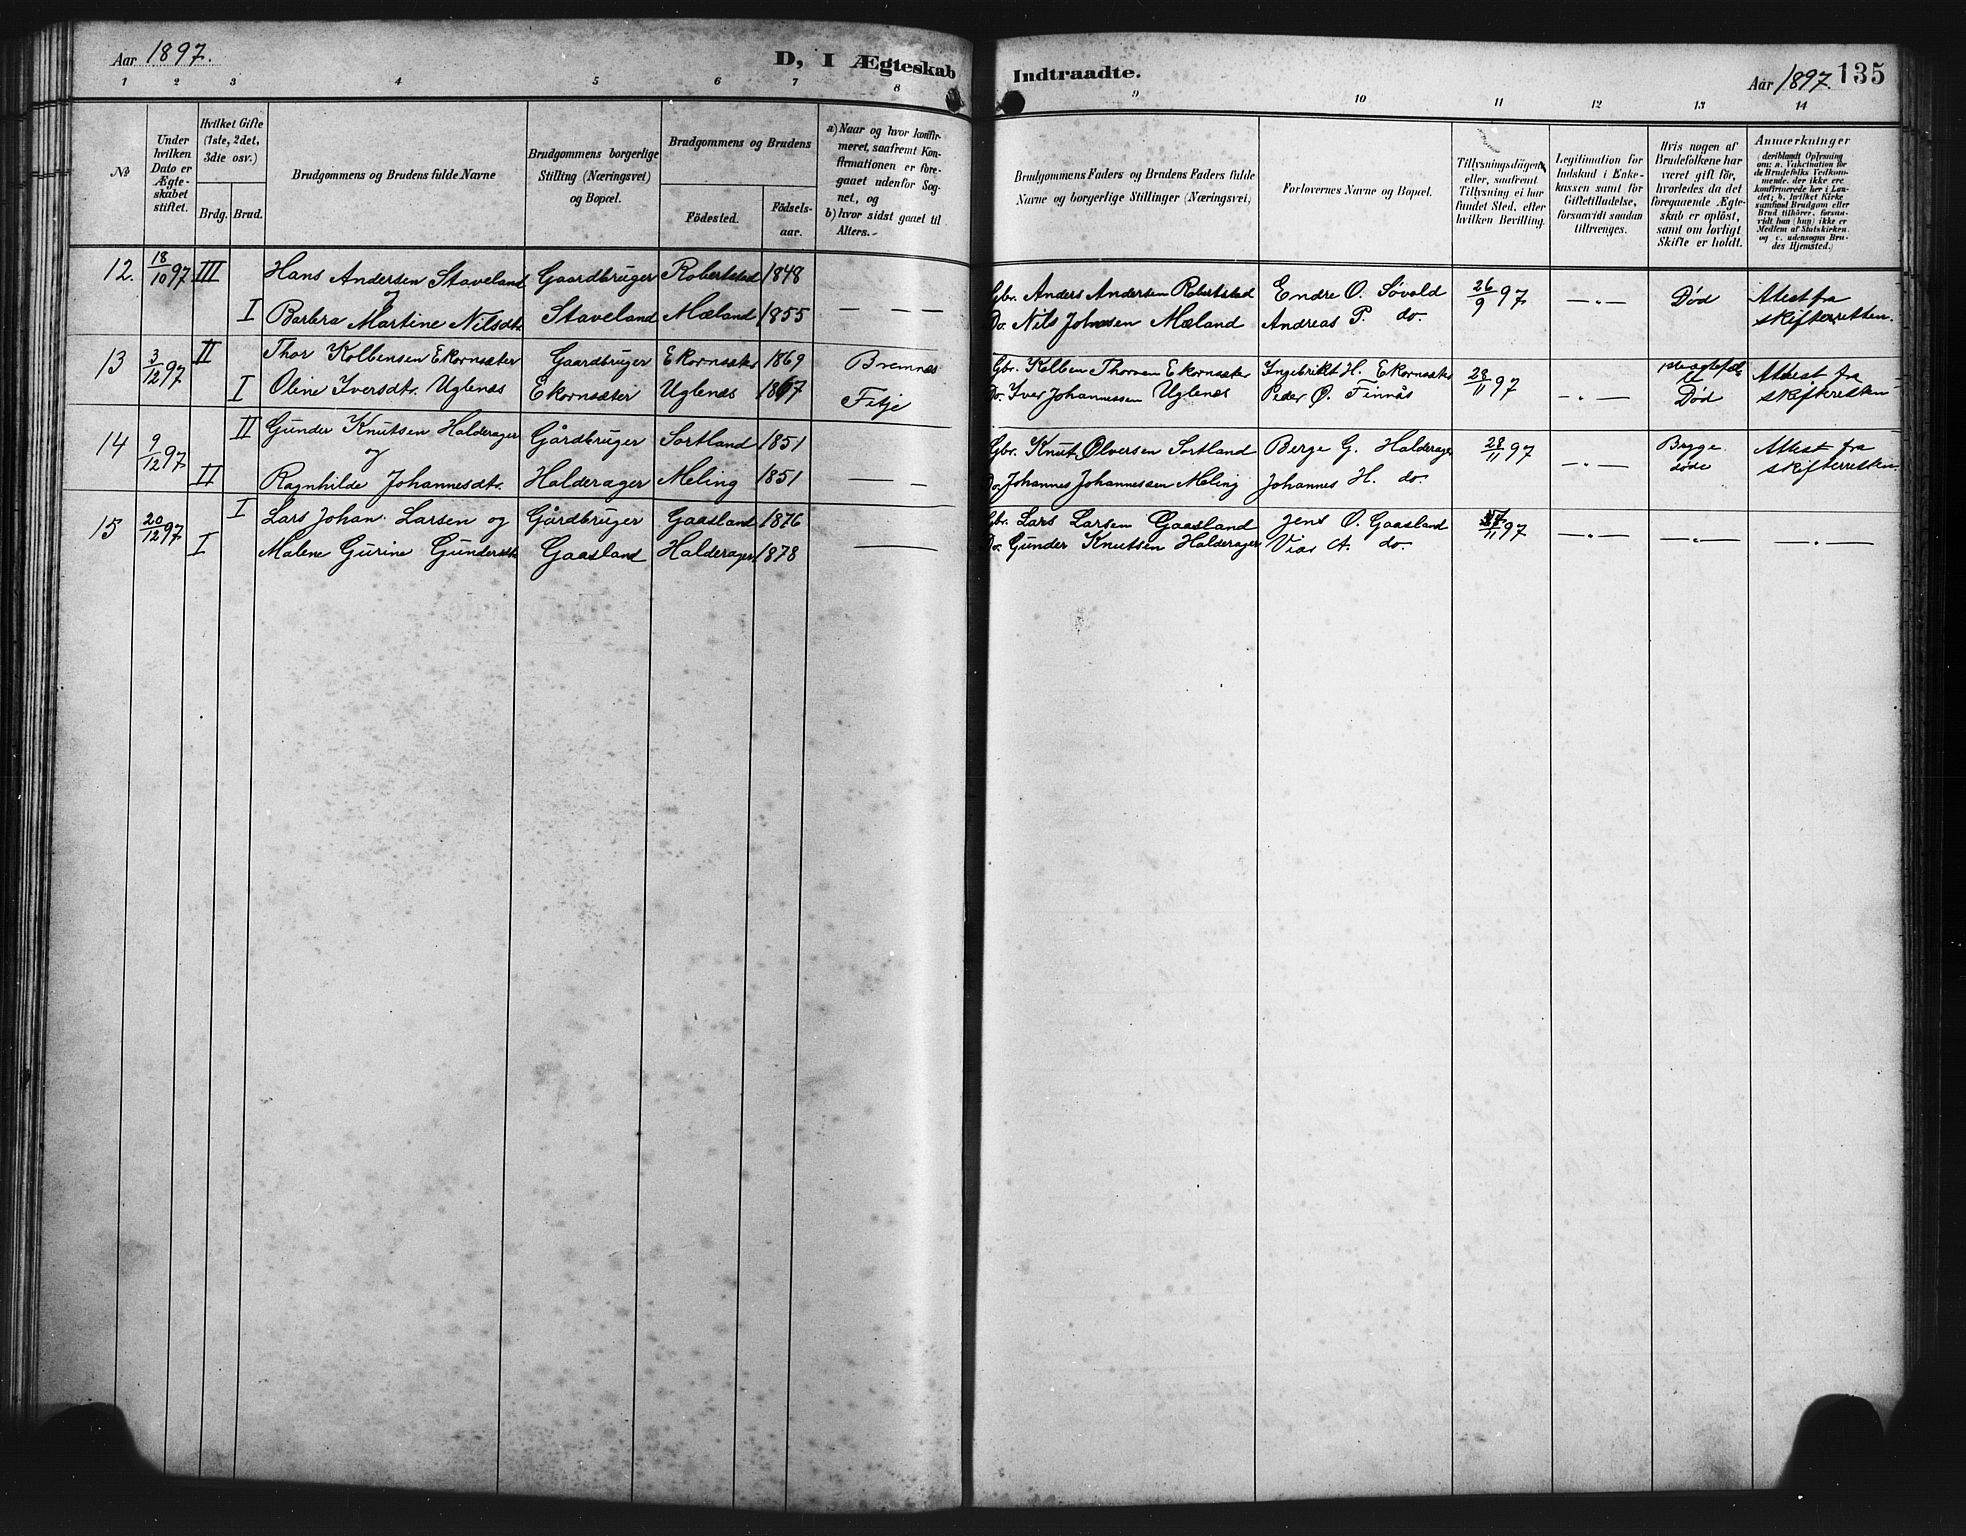 Aar 1897.
D, I Ægteskab
1 2 3 4 5 6 7 8
No
Under hvilken Dato er Ægteskabet stiftet.
Hvilket Gifte (1ste, 2det, 3die osv.)
Brdg. Brud.
Brudgommens og Brudens fulde Navne
Brudgommens borgerlige Stilling (Næringsvei) og Bopæl.
Brudgommens og Brudens
Födested.
Födsels-aar.
a) Naar og hvor konfirmeret, saafremt Konfirmationen er foregaaet udenfor Sognet, og
b) hvor sidst gaaet til Alters.
12. 18/10 97 III Hans Andersen Staveland Gaardbruger Robertstad 1848
og
I Barbra Martine Nilsdtr. Staveland Mæland 1855 — — —
13 3/12 97 II Thor Kolbensen Ekornsæter Gaardbruger Ekornsæter 1869 Bremnes
I Oline Iversdtr. Uglenæs Ekornsæter Uglenæs 1867 Fitje
14 9/12 97 II Gunder Knutsen Halderager Gårdbruger Sortland 1851
og
II Ragnhilde Johannesdtr. Halderager Meling 1851 — —
15 20/12 97 I Lars Johan Larsen og Gårdbruger Gaasland 1876
I Malene Gurine Gundersdtr. Gaasland Halderager 1878 —
Indtraadte.
Aar 1897. 135
9 10 11 12 13 14
Brudgommens Faders og Brudens Faders fulde Navne og borgerlige Stillinger (Næringsvei)
Forlovernes Navne og Bopæl.
Tillysningsdagene, eller, saafremt Tillysning ei har fundet Sted, efter hvilken Bevilling.
Legitimation for Indskud i Enkekassen samt for Giftetilladelse, forsaavidt saadan tiltrænges.
Hvis nogen af Brudefolkene har været gift för, hvorledes da det foregaaende Ægteskab er oplöst, samt om lovligt Skifte er holdt.
Anmærkninger
(deriblandt Oplysning om: a. Vakcination for de Brudefolks Vedkommende, der ikke ere konfirmerede her i Landet; b. hvilket Kirkesamfund Brudgom eller Brud tilhörer, forsaavidt han (hun) ikke er Medlem af Statskirken, og c. udensogns Brudes Hjemsted.)
Gbr. Anders Andersen Robertstad Endre O. Søvold 26/9 97 — " — Død Attest fra
Do. Nils Johnsen Mæland Andreas P. do. skifteretten.
Gbr. Kolben Thorsen Ekornsæter Ingebrikt H. Ekornsæter 28/11 97 — " — Død Attest fra
Do. Iver Johannessen Uglenæs Peder Ø. Finnås skifteretten
Gbr. Knut Ølversen Sortland Berge G. Halderager 28/11 97 — " — Begge døde Attest fra
Do. Johannes Johannessen Meling Johannes H. do skifteretten
Gbr. Lars Larsen Gaasland Jens O. Gaasland /11 97 — " — — " — — " —
Do. Gunder Knutsen Halderager A. do.